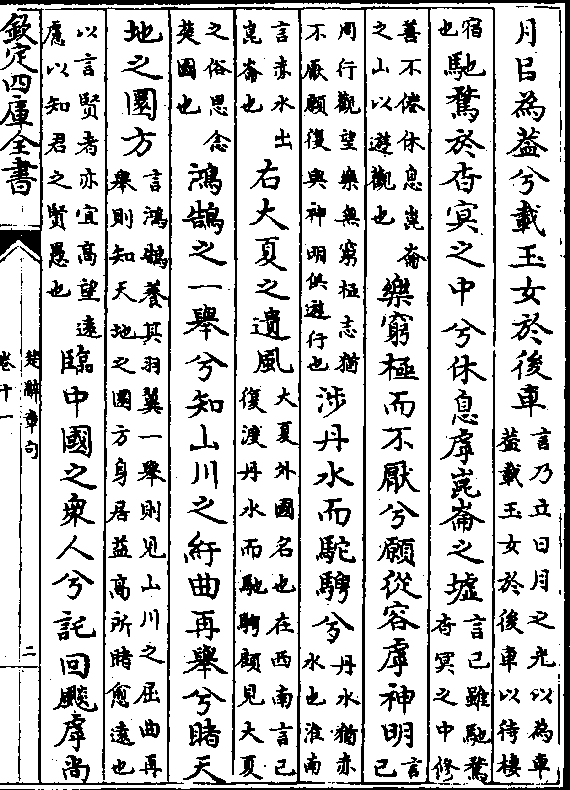 月㠯為葢兮載玉女於後車言乃立日月之光以為車
葢載玉女於後車以待棲
宿
也馳騖於杳冥之中兮休息虖崑崙之墟言已雖馳騖
杳冥之中修
善不倦休息崑崙
之山以遊觀也樂窮極而不厭兮願從容虖神明言
已
周行觀望樂無窮極志猶
不厭願復與神明俱遊行也涉丹水而駝騁兮丹水猶赤
水也淮南
言赤水出
崑崙也右大夏之遺風大夏外國名也在西南言已
復渡丹水而馳騁顧見大夏
之俗思念
楚國也鴻鵠之一舉兮知山川之紆曲再舉兮睹天
地之圜方言鴻鵠養其羽翼一舉則見山川之屈曲再
舉則知天地之圜方身居益高所睹愈遠也
以言賢者亦宜高望遠
慮以知君之賢愚也臨中國之衆人兮託回飈虖尚
欽定四庫全書
楚辭章句
卷十一
二